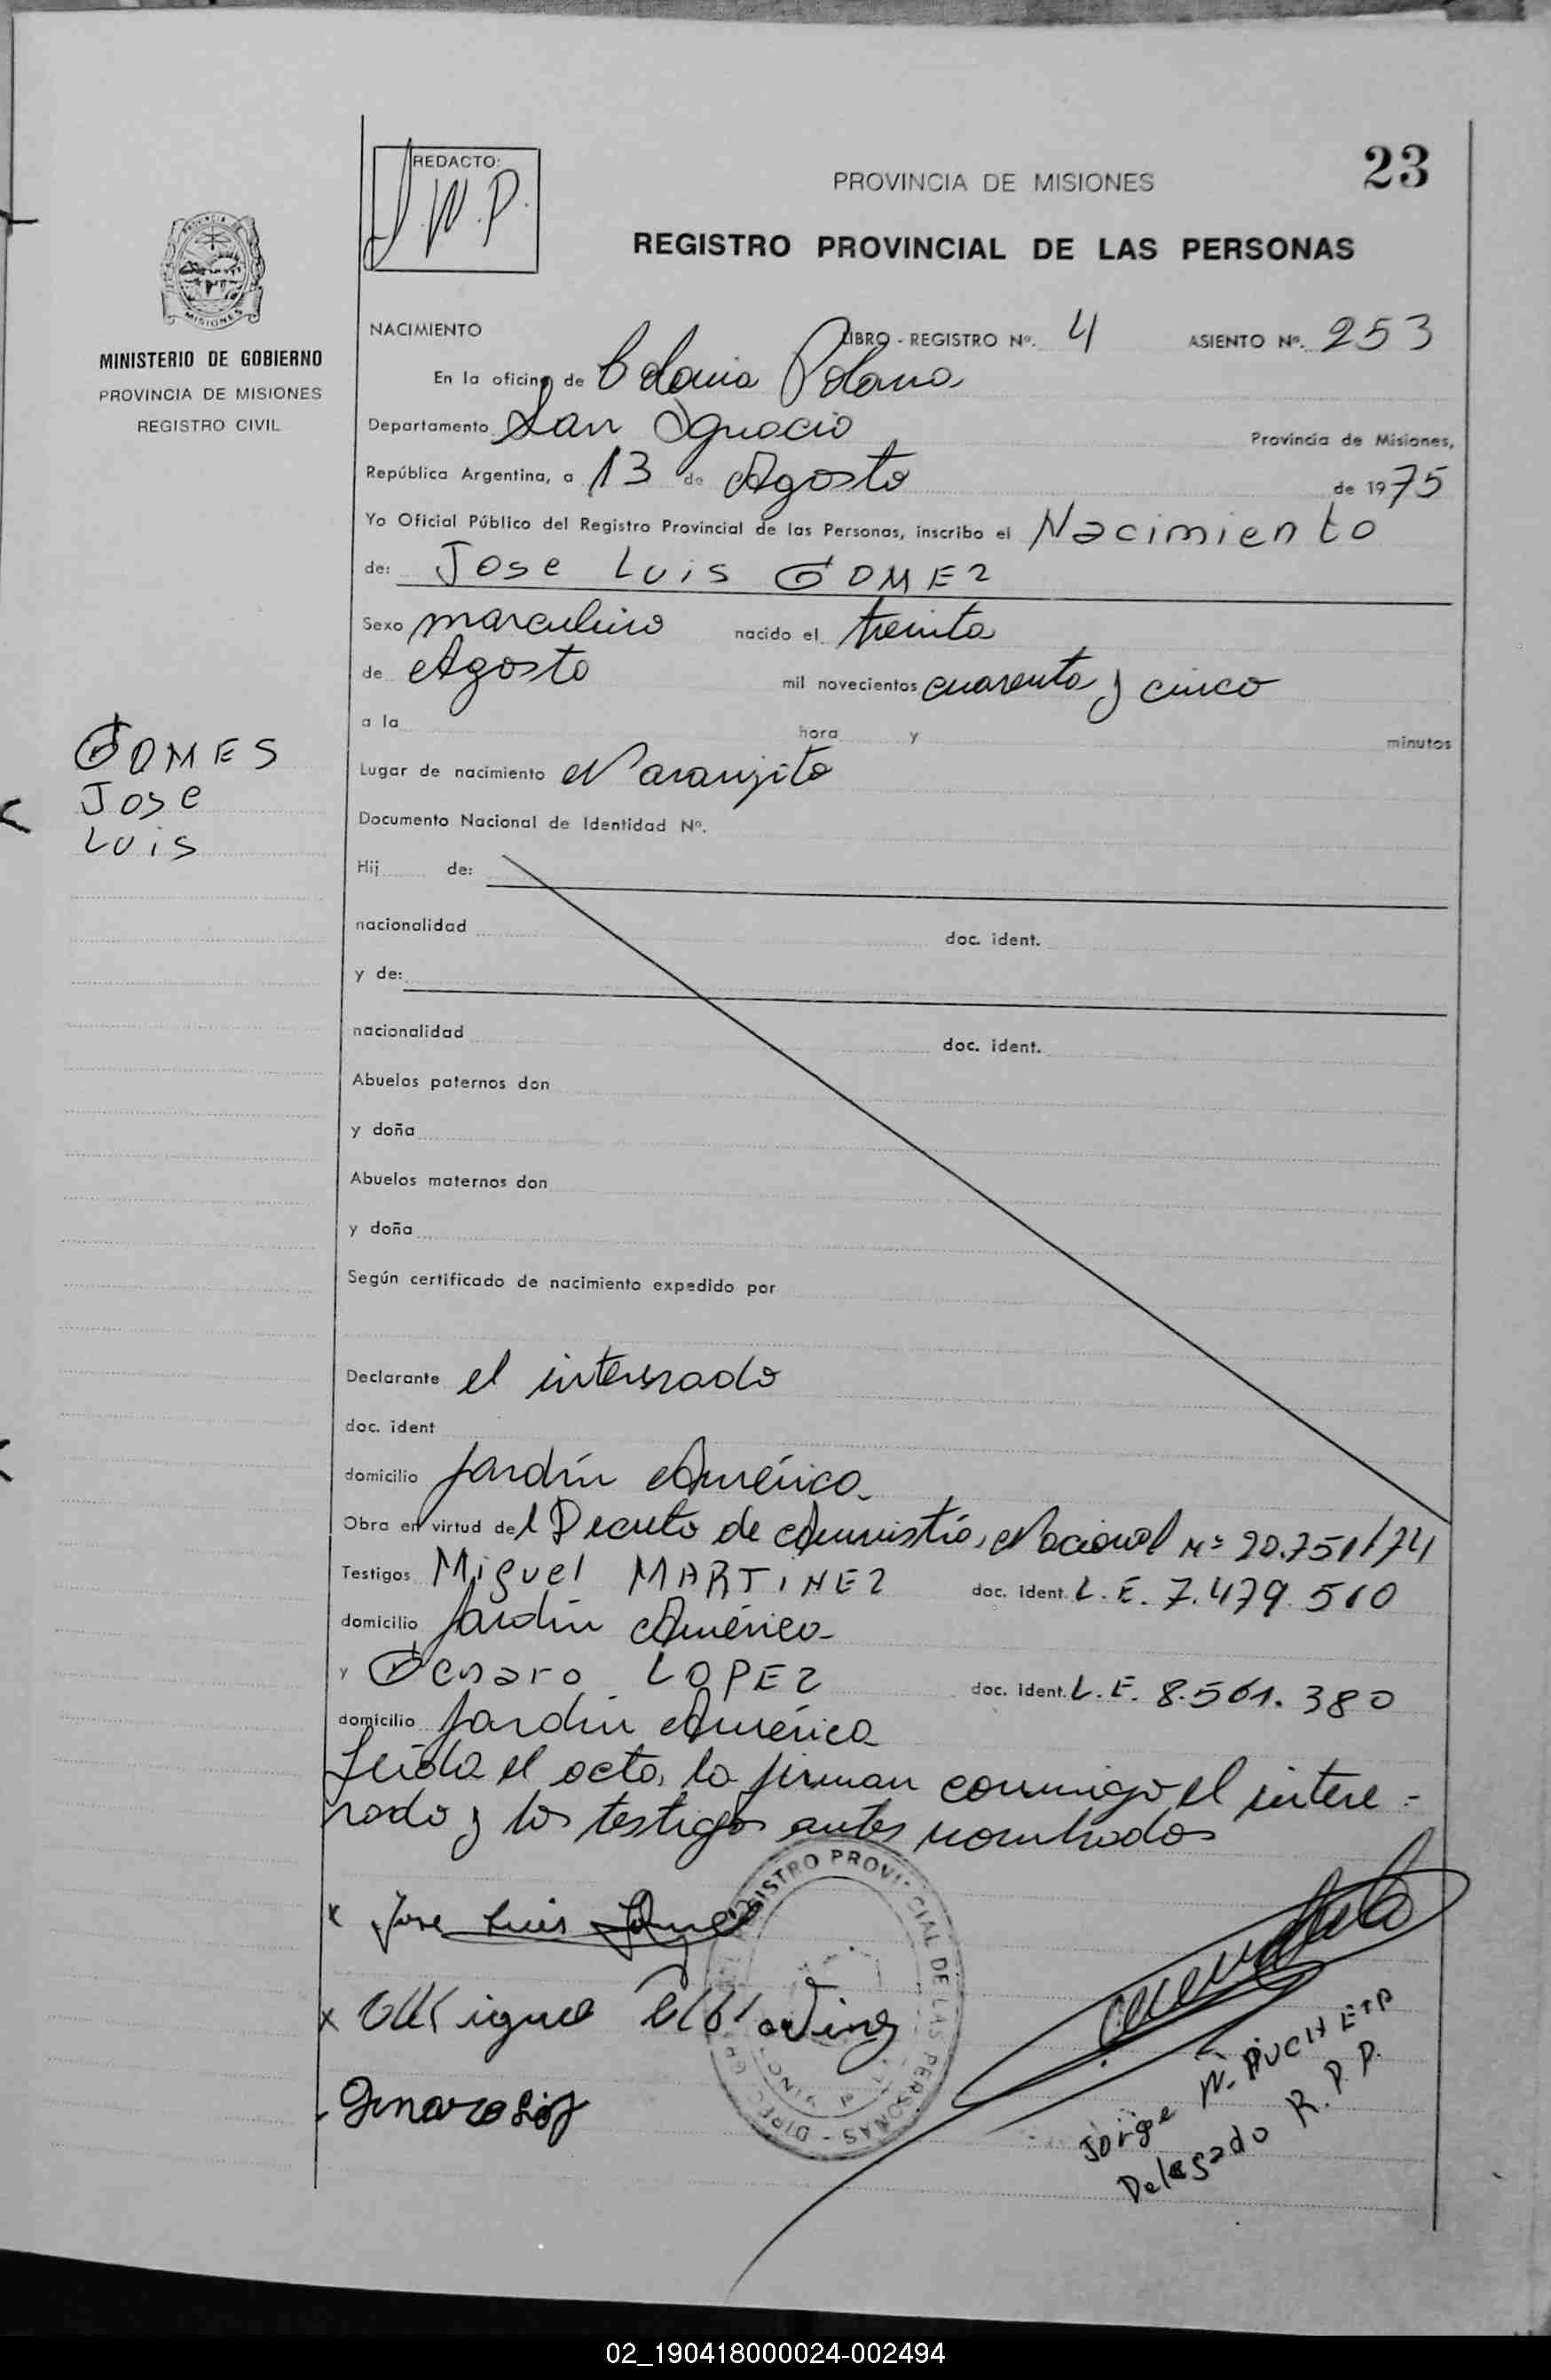 REDACTO:
J.W.P.
PROVINCIA DE MISIONES
23
REGISTRO PROVINCIAL DE LAS PERSONAS
MISIONES
MINISTERIO DE GOBIERNO
PROVINCIA DE MISIONES
REGISTRO CIVIL
NACIMIENTO LIBRO - REGISTRO Nº. 4 ASIENTO Nº. 253
En la oficina de Colonia Polana
Departamento San Ignacio Provincia de Misiones,
República Argentina, a 13 de Agosto de 1975
Yo Oficial Público del Registro Provincial de las Personas, inscribo el Nacimiento
de: Jose Luis GOMEZ
Sexo masculino nacido el treinta
de Agosto mil novecientos cuarenta y cinco
a la hora y minutos
GOMES
Jose
Luis
Lugar de nacimiento Naranjito
Documento Nacional de Identidad Nº.
Hij de:
nacionalidad doc. ident.
y de:
nacionalidad doc. ident.
Abuelos paternos don
y doña
Abuelos maternos don
y doña
Según certificado de nacimiento expedido por
Declarante el interesado
doc. ident
domicilio Jardín América
Obra en virtud del Decreto de Amnistía Nacional Nº 20.751/74
Testigos Miguel MARTINEZ doc. ident. L.E. 7.479.510
domicilio Jardín América
y Genaro LOPEZ doc. ident. L.E. 8.561.380
domicilio Jardín América
Leída el acta, la firman conmigo el intere-
sado y los testigos antes nombrados
x Jose Luis Gomez
x Miguel Martinez
Genaro Lopez
REGISTRO PROVINCIAL DE LAS PERSONAS - DIREC. GR
Jorge W. PUCHETA
Delegado R.P.P.
02_190418000024-002494